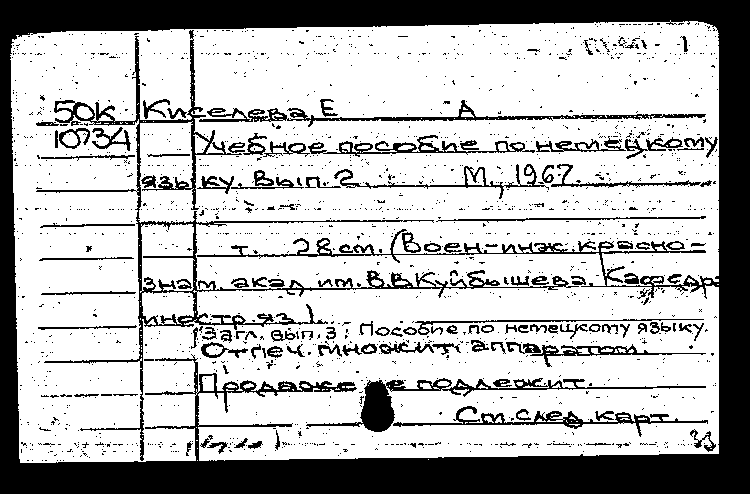 50К Киселева, Е А
10734 Учебное пособие по немецкому
языку. Вып. 2. М., 1967.
т. 28 ст. (Воен.-инж. красно-
знам. акад. им. В.В Куйбышева. Кафедра
иностр. яз.)
Загл. вып. 3: Пособие по немецкому языку.
Отпеч. множит. аппаратом.
Продаже не подлежит.
См. след. карт.
33